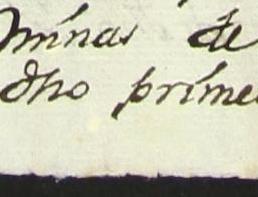 minas de
dho prime